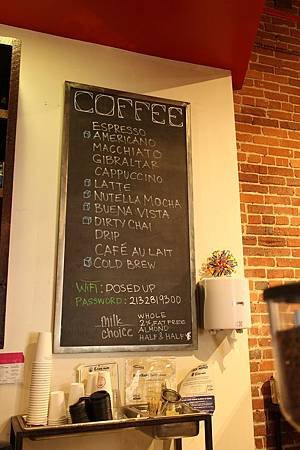 COFFEE
ESPRESSO
AMERICANO
MACCHIATO
GIBRALTAR
CAPPUCCINO
LATTE
NUTELLA MOCHA
BUENA VISTA
DIRTY CHAI
DRIP
CAFÉ AU LAIT
COLD BREW
WiFi: DOSED UP
PASSWORD: 2132819300
milk choice
WHOLE
2% FAT FREE
ALMOND
HALF & HALF